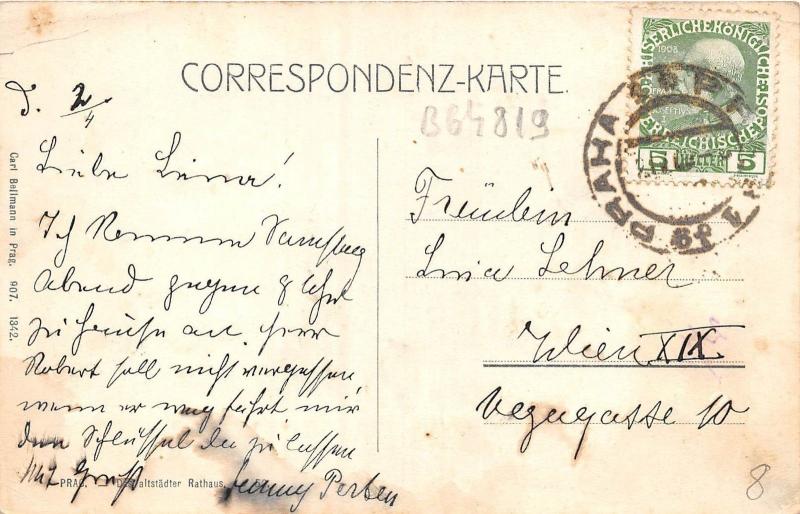 CORRESPONDENZ-KARTE.
B64819
2/4
Liebe Lina!
Ich komme Samstag
Abend gegen 8 Uhr
zu Hause an. Herr
Robert soll nicht vergessen,
wenn er weg fährt mir
den Schlüssel da zu lassen
Mit Gruß
Carl Bellmann in Prag. 907. 1342.
PRAG. altstädter Rathaus.
Fräulein
Lina Lehner
Wien XIX
Vegagasse 10
1908
5 5
PRAHA
8